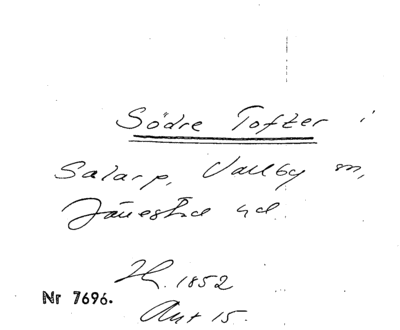 Södre Tofter i
Salarp, Vallby sn,
Järrestad hd.
1852
Nr 7696.
Ant 15.